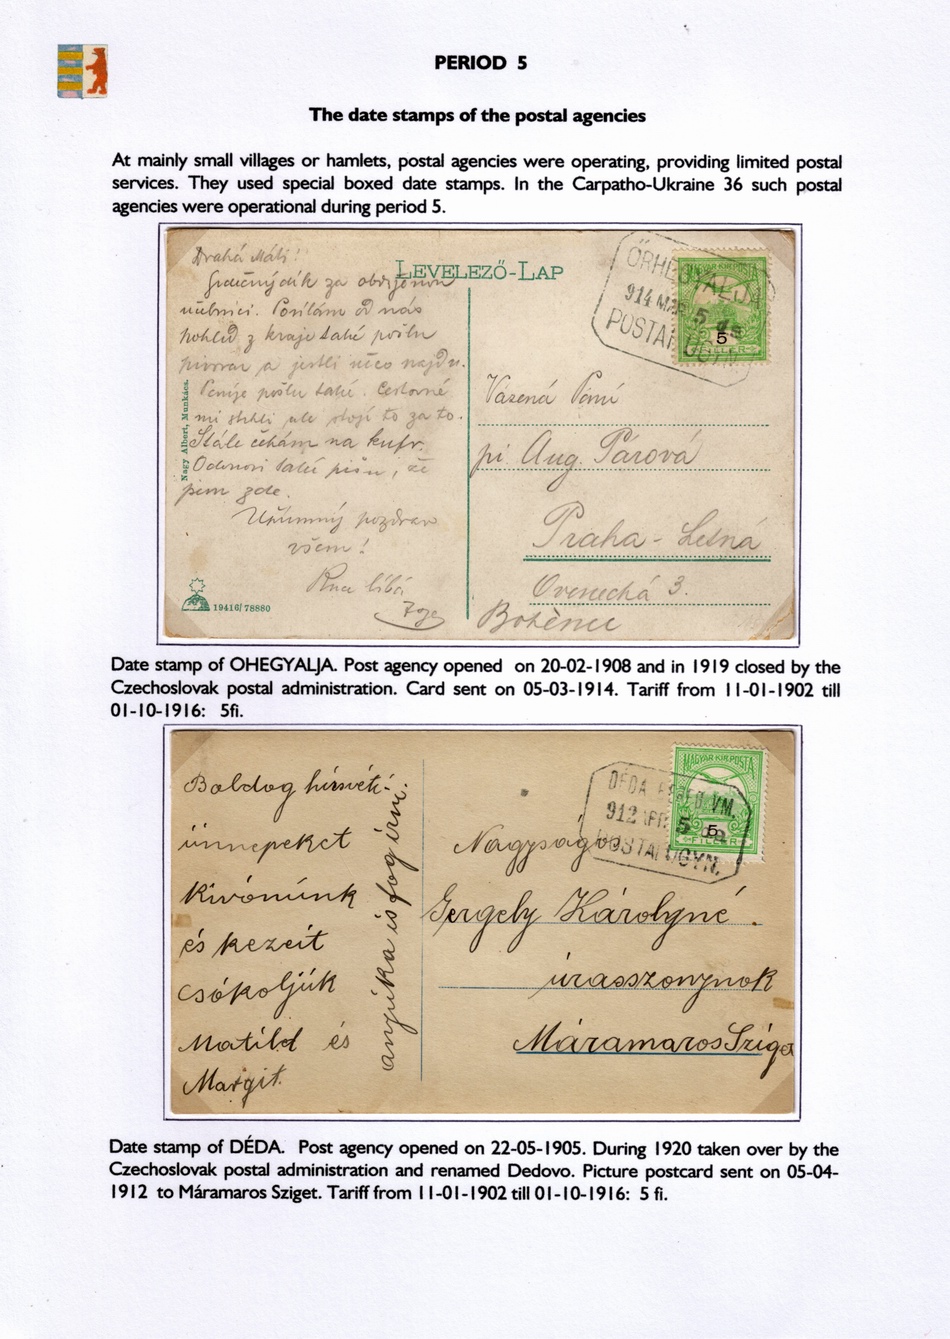 PERIOD 5
The date stamps of the postal agencies
At mainly small villages or hamlets, postal agencies were operating, providing limited postal
services. They used special boxed date stamps. In the Carpatho-Ukraine 36 such postal
agencies were operational during period 5.
Drahá Máti!
za
učebnici. Posílám Vám od nás
pohled z kraje také pošlu
pivovar a jestli něco najdu.
pošlu také. Cestovné
mi ale stojí to za to.
Stále čekám na kufr.
také píšu, že
jsem zde.
Upřímný pozdrav
všem!
Ruce líbá
LEVELEZŐ-LAP
Nagy Albert, Munkács.
19416/78880
ŐRHEGYALJA
914 MÁR 5
POSTAI ÜGYN.
MAGYAR KIR. POSTA
5
FILLÉR
Vázená Paní
pí. Aug. Párová
Praha - Letná
Ovenecká 3.
Date stamp of OHEGYALJA. Post agency opened on 20-02-1908 and in 1919 closed by the
Czechoslovak postal administration. Card sent on 05-03-1914. Tariff from 11-01-1902 till
01-10-1916: 5fi.
Boldog húsvéti
ünnepeket
Kivánunk
és kezeit
csókoljuk
Matild és
Margit.
anyuka is fog irni.
DÉDA VM.
912 ÁPR. 5
POSTAI ÜGYN.
MAGYAR KIR. POSTA
5
FILLÉR
Nagyságos
Gergely Károlyné
úrasszonynok
Máramaros Sziget
Date stamp of DÉDA. Post agency opened on 22-05-1905. During 1920 taken over by the
Czechoslovak postal administration and renamed Dedovo. Picture postcard sent on 05-04-
1912 to Máramaros Sziget. Tariff from 11-01-1902 till 01-10-1916: 5 fi.